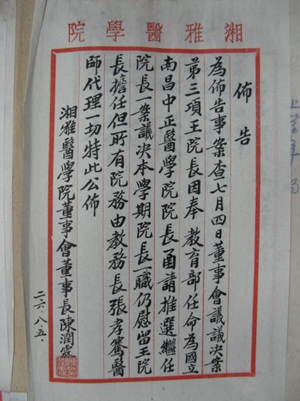 湘雅醫學院
佈告
為佈告事案查七月四日董事會議議決案
第三項王院長因奉教育部任命為國立
南昌中正醫學院院長函請推選繼任
院長一案議決本學期院長一職仍慰留王院
長擔任但所有院務由教務長張孝騫醫
師代理一切特此公佈
湘雅醫學院董事會董事長陳潤霖
二六・八・五・